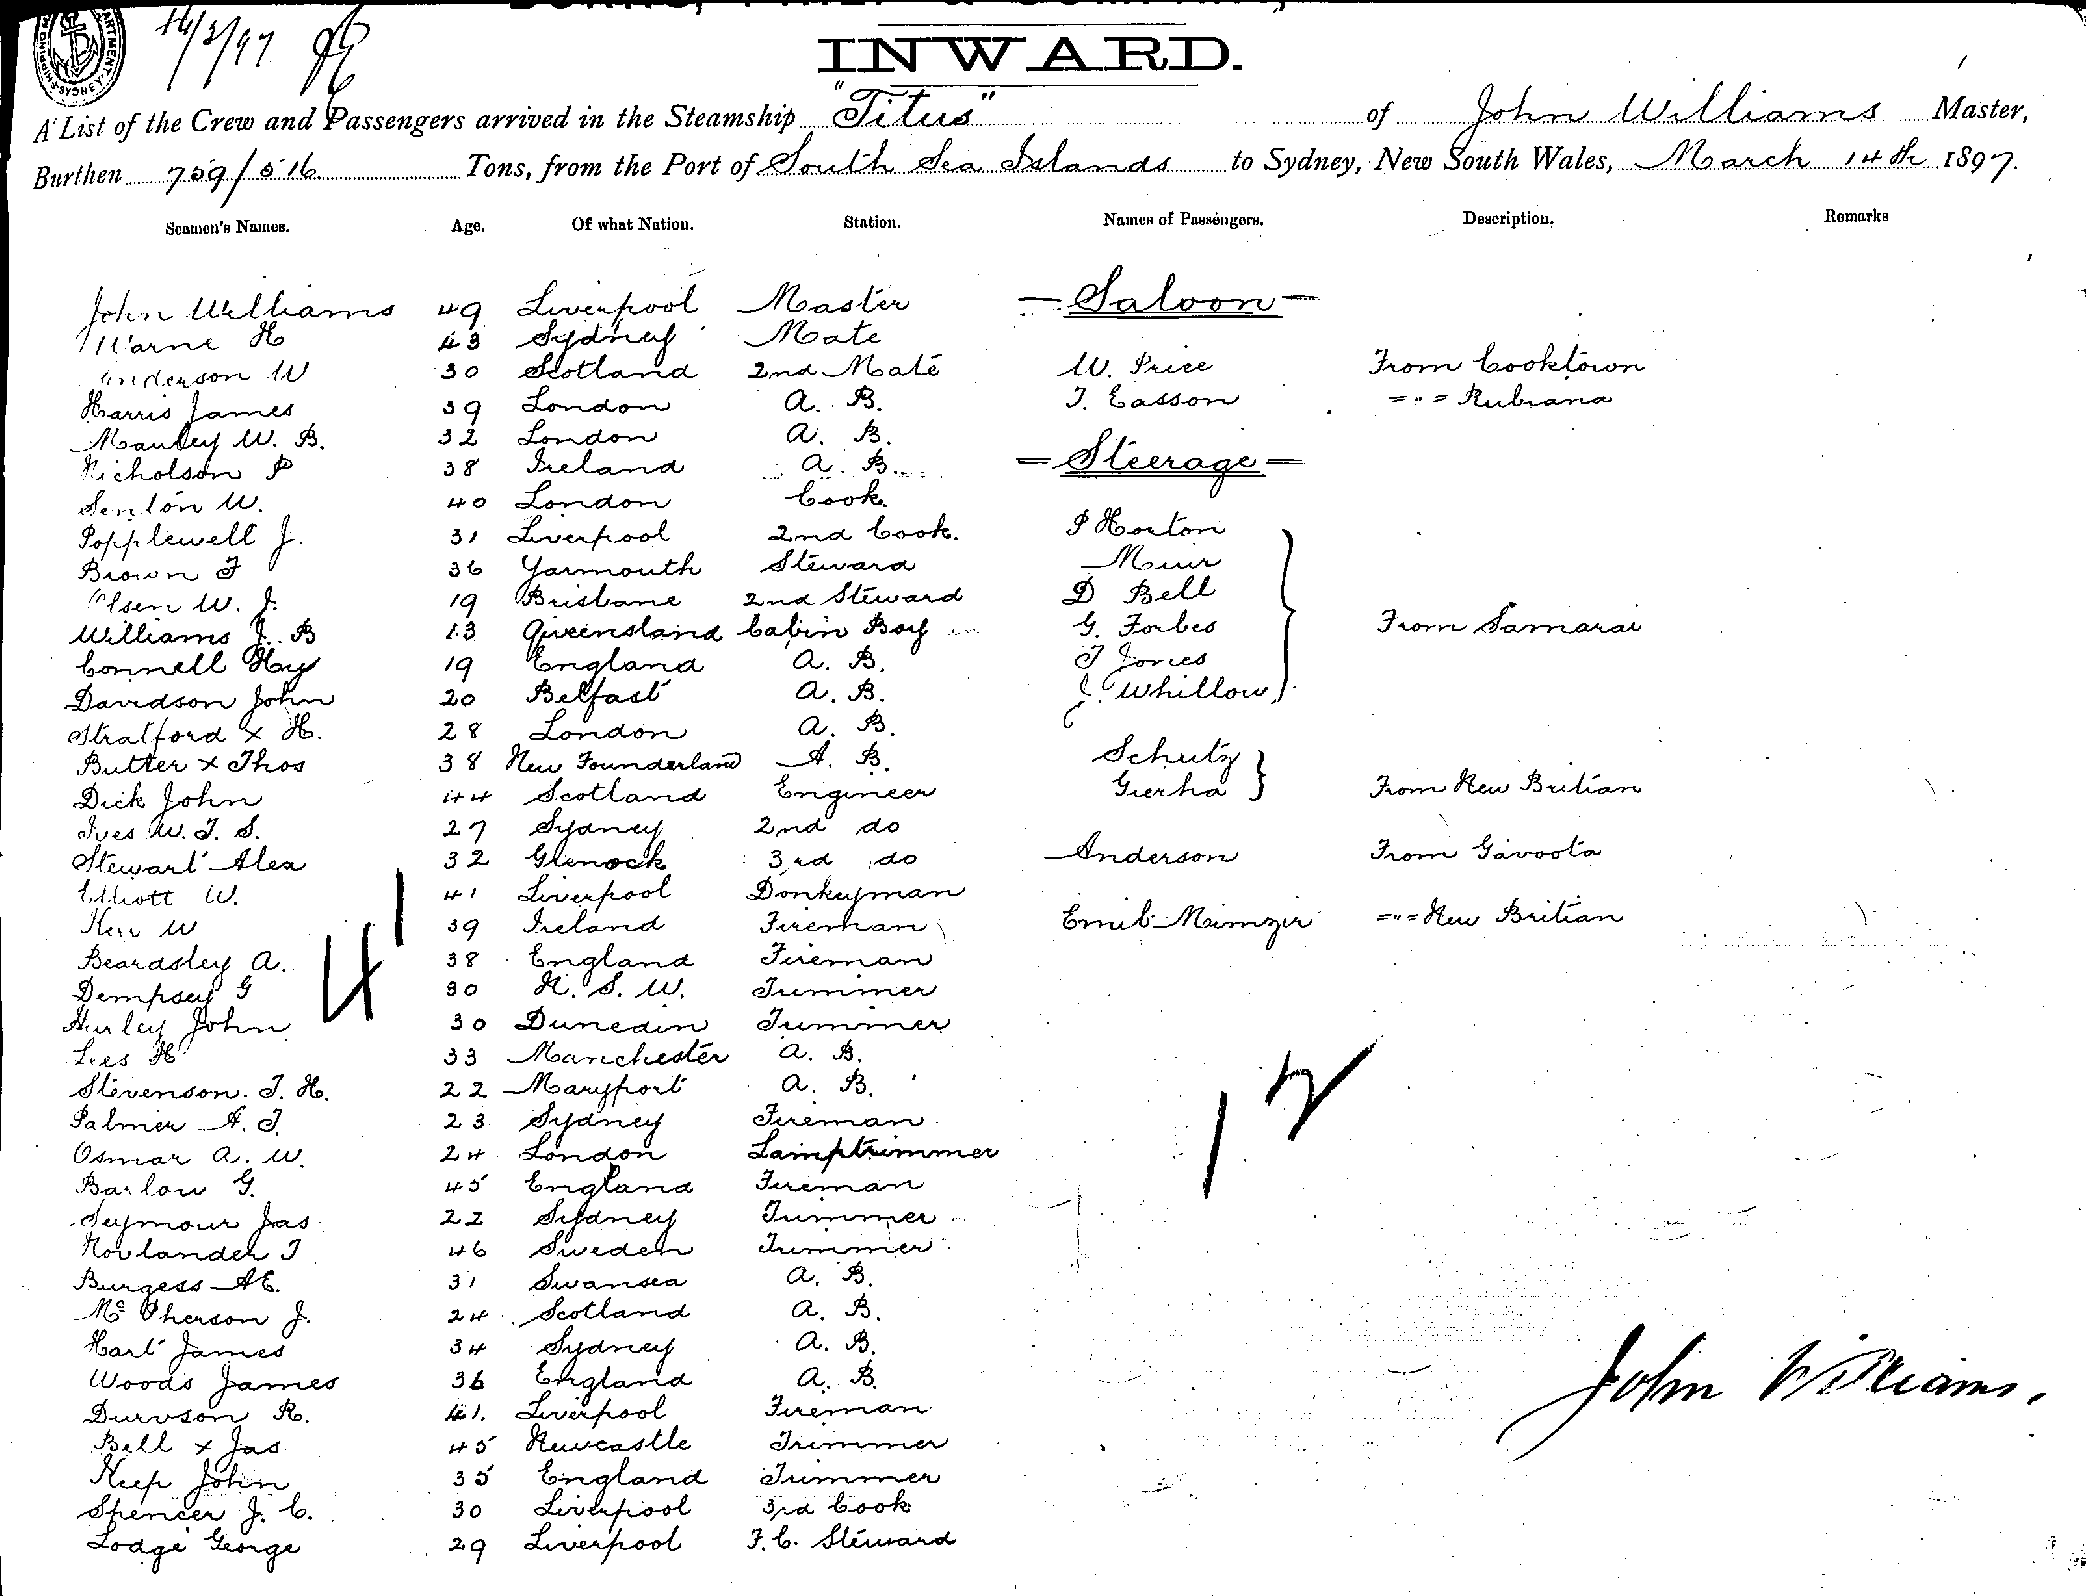 14/3/97
INWARD.
A List of the Crew and Passengers arrived in the Steamship "Titus" of John Williams Master,
Burthen 759/516 Tons, from the Port of South Sea Islands to Sydney, New South Wales, March 14th 1897.
Seamen's Names. Age. Of what Nation. Station. Names of Passengers. Description. Remarks
John Williams 49 Liverpool Master — Saloon —
Warne H 43 Sydney Mate
Anderson W 30 Scotland 2nd Mate W. Price From Cooktown
Harris James 39 London A. B. T. Easson = " = Rubiana
Manley W. B. 32 London A. B.
Nicholson P 38 Ireland A. B. = Steerage =
Senton W. 40 London Cook
Popplewell J. 31 Liverpool 2nd Cook. P Horton
Brown F 36 Yarmouth Steward Muir
Olsen W. J. 19 Brisbane 2nd Steward D Bell
Williams J. B 13 Queensland Cabin Boy G. Forbes From Samarai
Connell Hy 19 England A. B. T Jones
Davidson John 20 Belfast A. B. J. Whillow
Stratford x H. 28 London A. B.
Butter x Thos 38 New Founderland A. B. Schutz
Dick John 44 Scotland Engineer Gierha From New Britian
Ives W. T. S. 27 Sydney 2nd do
Stewart Alex 32 Glenock 3rd do Anderson From Gavoota
Elliott W. 41 Liverpool Donkeyman
Kerr W 39 Ireland Fireman Emil = " = New Britian
Beardsley A. 38 England Fireman
41
Dempsey G 30 N. S. W. Trimmer
Hurley John 30 Dunedin Trimmer
Lees H 33 Manchester A. B.
Stevenson. T. H. 22 Maryport A. B.
12
Palmer A. T. 23 Sydney Fireman
Osmar A. W. 24 London Lamptrimmer
Barlow G. 45 England Fireman
Seymour Jas 22 Sydney Trimmer
Norlander T 46 Sweden Trimmer
Burgess AE. 31 Swansea A. B.
McPherson J. 24 Scotland A. B.
Hart James 34 Sydney A. B.
Woods James 36 England A. B. John Williams.
R. 41. Liverpool Fireman
Bell x Jas 45 Newcastle Trimmer
Keep John 35 England Trimmer
Spencer J. C. 30 Liverpool 3rd Cook
Lodge George 29 Liverpool F. C. Steward